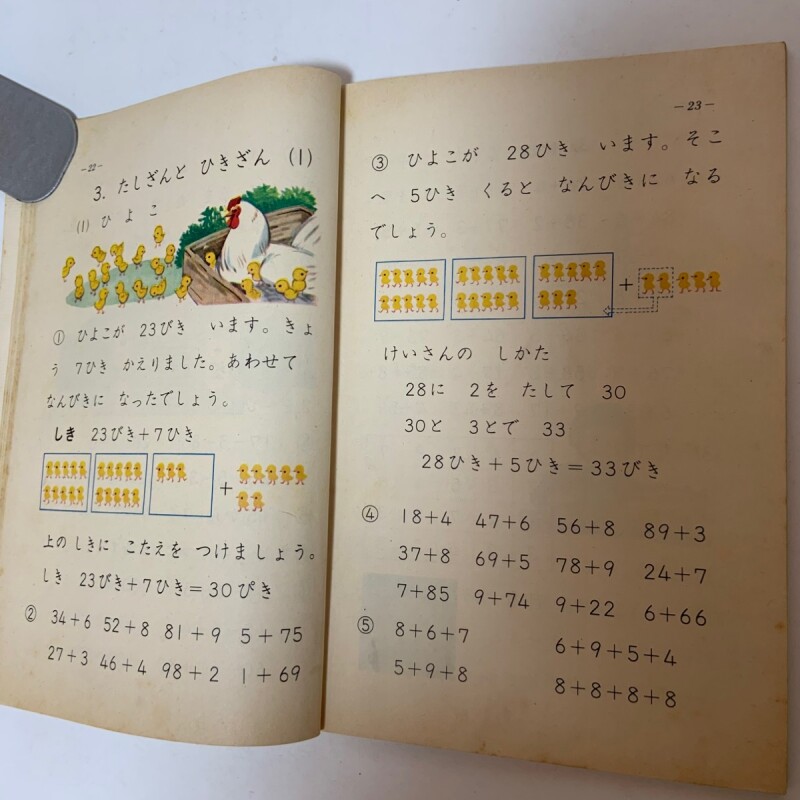 －22－
3. たしざんと ひきざん (1)
(1) ひ よ こ
① ひよこが 23びき います。きょ
う 7ひき かえりました。あわせて
なんびきに なったでしょう。
しき 23びき＋7ひき
＋
上の しきに こたえを つけましょう。
しき 23びき＋7ひき＝30ぴき
② 34＋6 52＋8 81＋9 5＋75
27＋3 46＋4 98＋2 1＋69
－23－
③ ひよこが 28ひき います。そこ
へ 5ひき くると なんびきに なる
でしょう。
＋
けいさんの しかた
28に 2を たして 30
30と 3とで 33
28ひき＋5ひき＝33びき
④ 18＋4 47＋6 56＋8 89＋3
37＋8 69＋5 78＋9 24＋7
7＋85 9＋74 9＋22 6＋66
⑤ 8＋6＋7 6＋9＋5＋4
5＋9＋8 8＋8＋8＋8